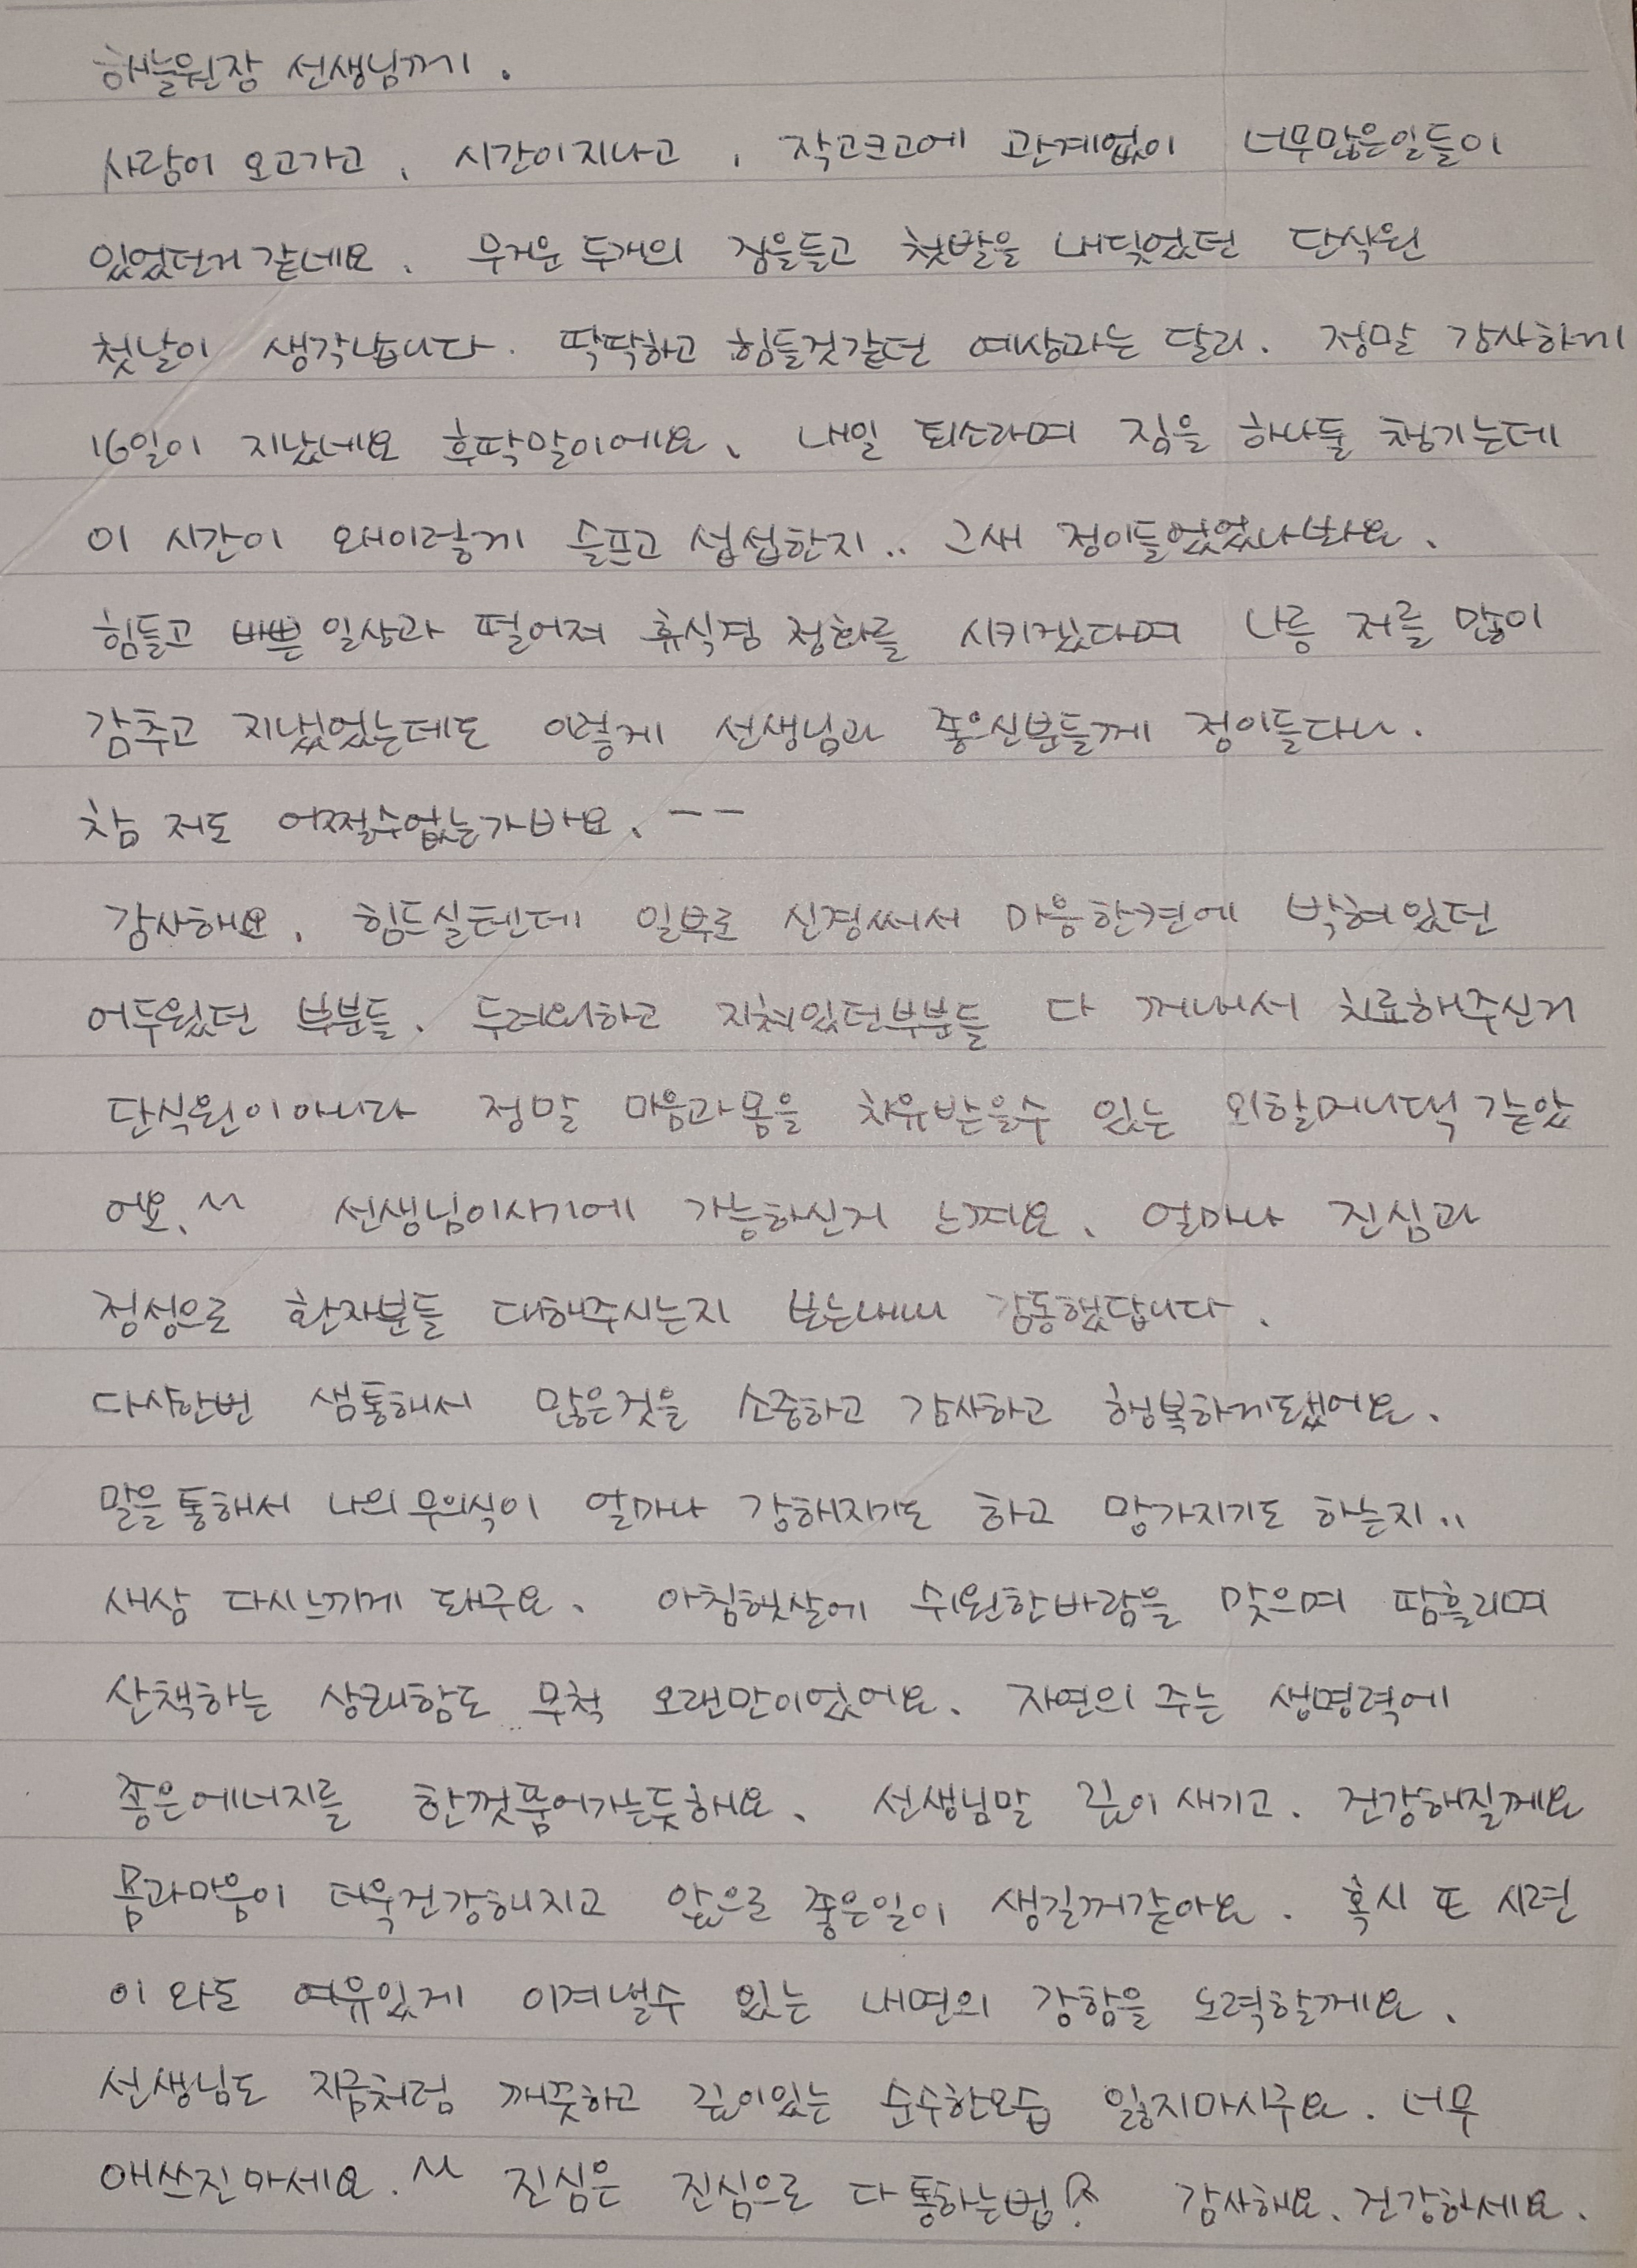 하늘원장 선생님께.
사람이 오고가고, 시간이지나고, 작고크고에 관계없이 너무많은일들이
있었던거같네요. 무거운 두개의 짐을들고 첫발을 내딪었던 단식원
첫날이 생각납니다. 딱딱하고 힘들것같던 예상과는 달리. 정말 감사하게
16일이 지났네요 후딱말이에요. 내일 퇴소라며 짐을 하나둘 챙기는데
이 시간이 왜이렇게 슬프고 섭섭한지.. 그새 정이들었었나봐요.
힘들고 바쁜 일상과 떨어져 휴식겸 정화를 시키겠다며 나름 저를 많이
감추고 지냈었는데도 이렇게 선생님과 좋으신분들께 정이들다니.
참 저도 어쩔수없는가바요. ㅡㅡ
감사해요. 힘드실텐데 일부로 신경써서 마음한켠에 박혀있던
어두웠던 부분들. 두려워하고 지쳐있던부분들 다 꺼내서 치료해주신거
단식원이아니라 정말 마음과몸을 치유받을수 있는 외할머니댁 같았
어요. ^^ 선생님이시기에 가능하신거 느껴요. 얼마나 진심과
정성으로 환자분들 대해주시는지 보는내내 감동했답니다.
다시한번 샘통해서 많은것을 소중하고 감사하고 행복하게됐어요.
말을통해서 나의무의식이 얼마나 강해지기도 하고 망가지기도 하는지..
새삼 다시느끼게 돼구요. 아침햇살에 쉬원한바람을 맞으며 땀흘리며
산책하는 상쾌함도 무척 오랜만이었어요. 자연의 주는 생명력에
좋은에너지를 한껏품어가는듯해요. 선생님말 깊이 새기고. 건강해질께요
몸과마음이 더욱건강해지고 앞으로 좋은일이 생길꺼같아요. 혹시 또 시련
이 와도 여유있게 이겨낼수 있는 내면의 강함을 노력할께요.
선생님도 지금처럼 깨끗하고 깊이있는 순수한모습 잃지마시구요. 너무
애쓰진마세요. ^^ 진심은 진심으로 다 통하는법! 감사해요. 건강하세요.